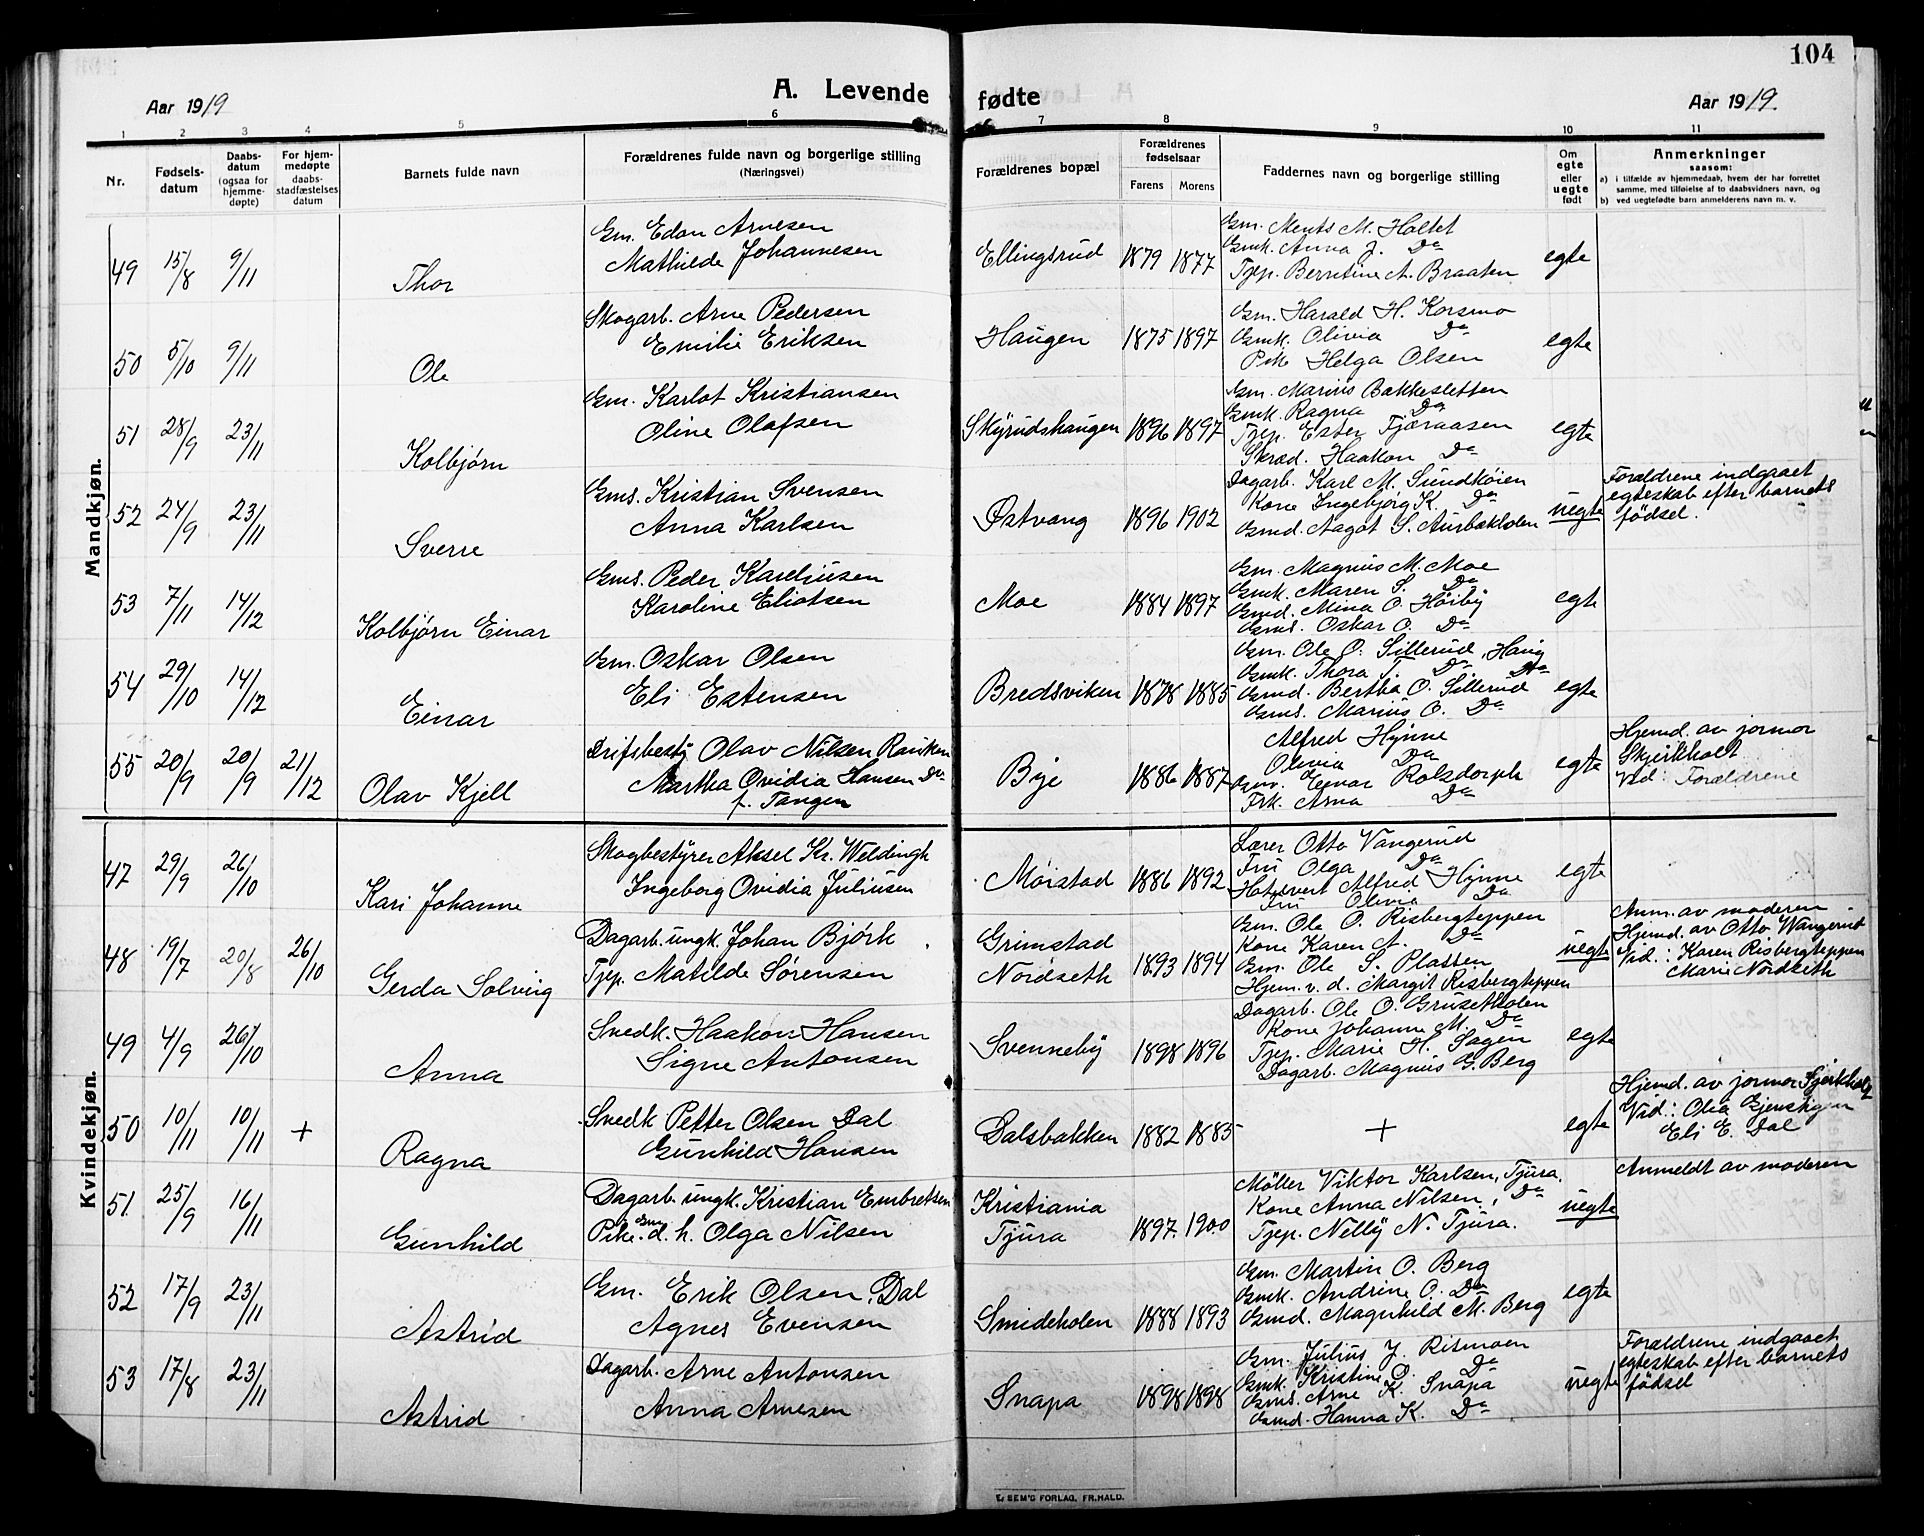 104
A. Levende fødte
Aar 1919
Aar 1919.
1 2 3 4 5 6 7 8 9 10 11
Nr.
Fødsels-
datum
Daabs-
datum
(ogsaa for
hjemme-
døpte)
For hjem-
medøpte
daabs-
stadfæstelses
datum
Barnets fulde navn
Forældrenes fulde navn og borgerlige stilling
(Næringsvei)
Forældrenes bopæl
Forældrenes
fødselsaar
Farens Morens
Faddernes navn og borgerlige stilling
Om
egte
eller
uegte
født
Anmerkninger
saasom:
a) i tilfælde av hjemmedaab, hvem der har forrettet
samme, med tilføielse af to daabsvidners navn, og
b) ved uegtefødte barn anmelderens navn m. v.
Mandkjøn.
49 15/8 9/11 Thor
Gm. Edon Arnesen
Mathilde Johannesen
Ellingsrud 1879 1877
Gm. Ments M. Holtet
Gmk. Anna J. Do
Tjep. Berntine A. Braaten
egte
50 5/10 9/11 Ole
Skogarb. Arne Pedersen
Emilie Eriksen
Haugen 1875 1897
Gm. Harald H. Korsmo
Gmk. Olivia Do
Pike Helga Olsen
egte
51 28/9 23/11 Kolbjørn
Gm. Karlot Kristiansen
Oline Olafsen
Skyrudshaugen 1896 1897
Gm. Marius Bakkesletten
Gmk. Ragna Do
Tjep. Ester Fjæraasen
Skræd. Haakon Do
egte
52 24/9 23/11 Sverre
Gms. Kristian Svensen
Anna Karlsen
Østvang 1896 1902
Dagarb. Karl M. Sundkøien
Kone Ingebjørg K. Do
Gmd. Aagot S. Aurbækholen
uegte
Forældrene indgaaet
egteskab efter barnets
fødsel.
53 7/11 14/12 Kolbjørn Einar
Gms. Peder Kareliusen
Karoline Eliotsen
Moe 1884 1897
Gm. Magnus M. Moe
Gmk. Maren S. Do
Gmd. Mina O. Høiby
Gms. Oskar O. Do
egte
54 29/10 14/12 Einar
Gm. Oskar Olsen
Eli Estensen
Bredsviken 1878 1885
Gm. Ole O. Sillerud, Haug
Gmk. Thora T. Do Do
Gmd. Bertha O. Sillerud
Gms. Marius O. Do
egte
55 20/9 20/9 21/12 Olav Kjell
Drifsbesty Olav Nilsen Ranken
Martha Ovidia Hansen Do
f. Tangen
Bye 1886 1887
Alfred Hynne
Olivia Do
Gm. Einar Rolsdorph
Frk. Arna Do
egte
Hjemd. av jormor
Skjerkholt
Vid: Forældrene
Kvindekjøn.
47 29/9 26/10 Kari Johanne
Skogbestyrer Aksel Kr. Weldingh
Ingeborg Ovidia Juliusen
Mørstad 1886 1892
Lærer Otto Vangerud
Fru Olga Do
Hotelvert Alfred Hynne
Fru Olivia Do
egte
48 19/7 20/8 26/10 Gerda Solveig
Dagarb. ungk. Johan Bjørk
Tjep. Matilde Sørensen
Grimstad
Nordseth 1893 1894
Gm. Ole O. Risbergteppen
Kone Karen A. Do
Gm. Ole S. Platsen
Hjem. v. d. Margit Risbergteppen
uegte
Anm. av moderen
Hjemd. av Otto Wangerud
Vid.: Karen Risbergteppen
Marie Nordseth
49 4/9 26/10 Anna
Snedk. Haakon Hansen
Signe Antonsen
Svenneby 1898 1896
Dagarb. Ole O. Grusetholen
Kone Johanne M. Do
Tjep. Marie H. Sagen
Dagarb. Magnus G. Berg
egte
50 10/11 10/11 + Ragna
Snedk Petter Olsen Dal
Gunhild Hansen
Dalsbakken 1882 1885
+
egte
Hjemd. av jormor Skjerkholt
Vid.: Olia Gjenstigen
Eli E. Dal
51 25/9 16/11 Gunhild
Dagarb. ungk. Kristian Embretsen
Pike. Gm. d. h. Olga Nilsen
Kristiania
Tjura 1897. 1900
Møller Viktor Karlsen, Tjura.
Kone Anna Nilsen, Do
Tjep. Nelly N. Tjura.
uegte
Anmeldt av moderen
52 17/9 23/11 Astrid
Gm. Erik Olsen, Dal
Agnes Evensen
Smideholen 1888 1893
Gm. Martin O. Berg
Gmk. Andrine O. Do
Gmd. Magnhild M. Berg
egte
53 17/8 23/11 Astrid
Dagarb. Arne Antonsen
Anna Arnesen
Snapa 1898 1898
Gm. Julius J. Rismoen
Gmk. Kristine P. Do
Gms. Arne K. Snapa
Gmd. Hanna K. Do
uegte
Forældrene indgaaet
egteskab efter barnets
fødsel
E. SEM'S FORLAG, FR.HALD.